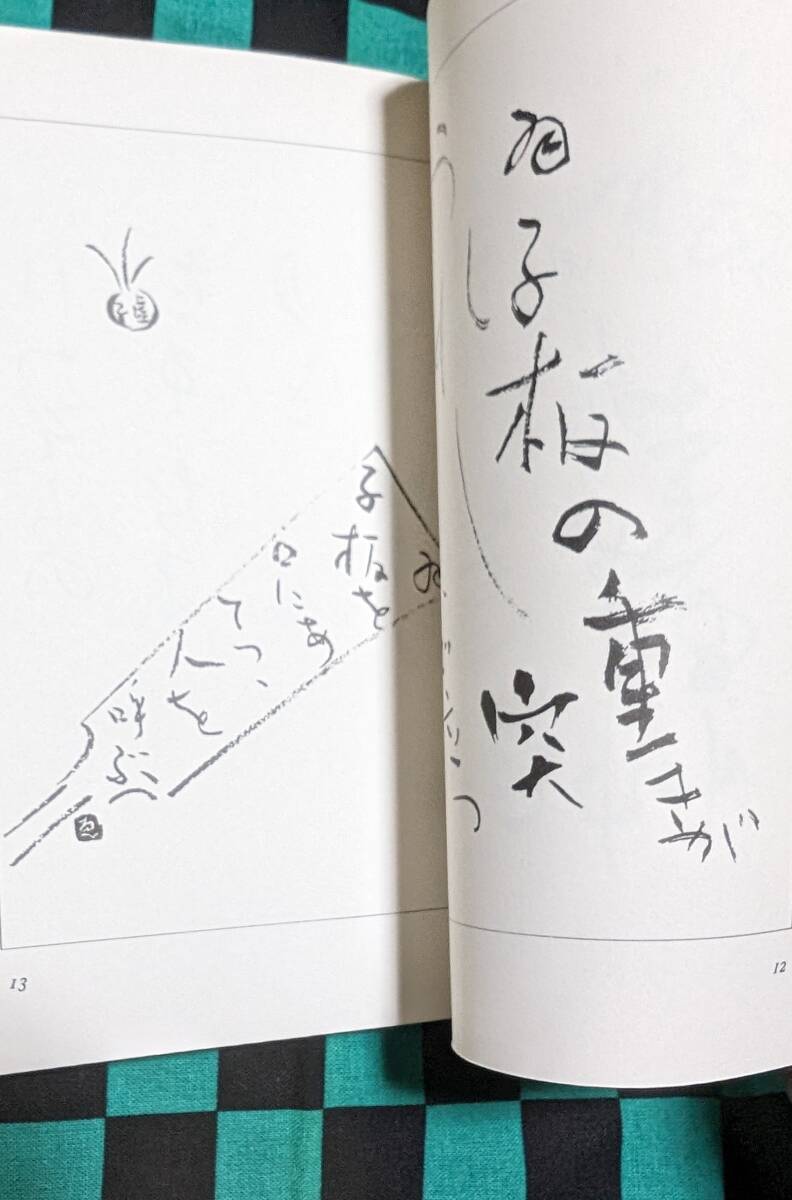 羽子板の重きが
突
12
羽
子板を
口にあ
てつゝ
人を
呼ぶ
ゑ
13